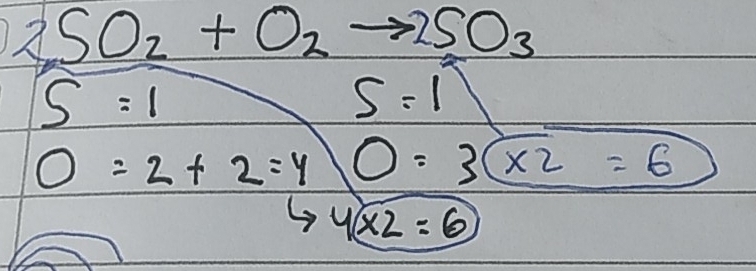 2SO₂ + O₂ → 2SO₃
S = 1 S = 1
O = 2 + 2 = 4 O = 3 ×2 = 6
↳ 4×2 = 6